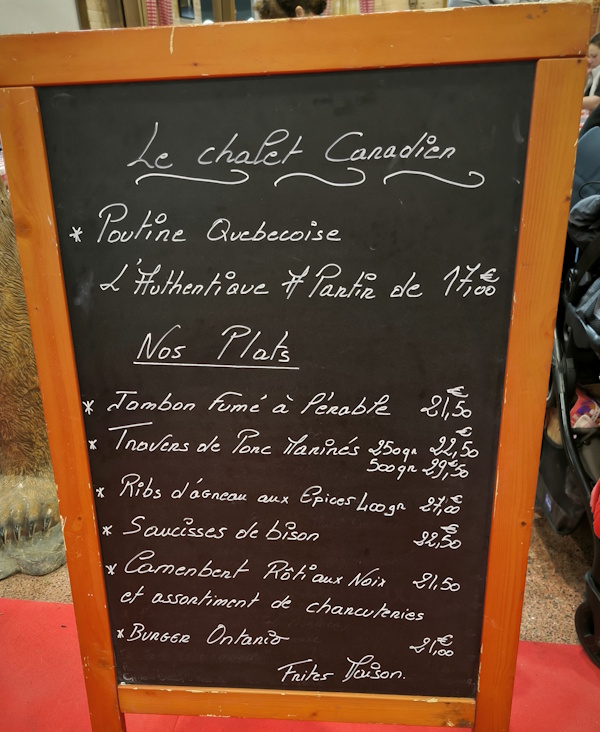 Le chalet Canadien
* Poutine Quebecoise
L'Authentique A Partir de 17,00€
Nos Plats
* Jambon Fumé à l'érable 21,50€
* Travers de Porc Marinés 250gr 22,50€
500gr 29,50€
* Ribs d'agneau aux Epices 400gr 27,00€
* Saucisses de bison 22,50€
* Camembert Rôti aux Noix 21,50
et assortiment de charcuteries
* Burger Ontario 21,00€
Frites Maison.